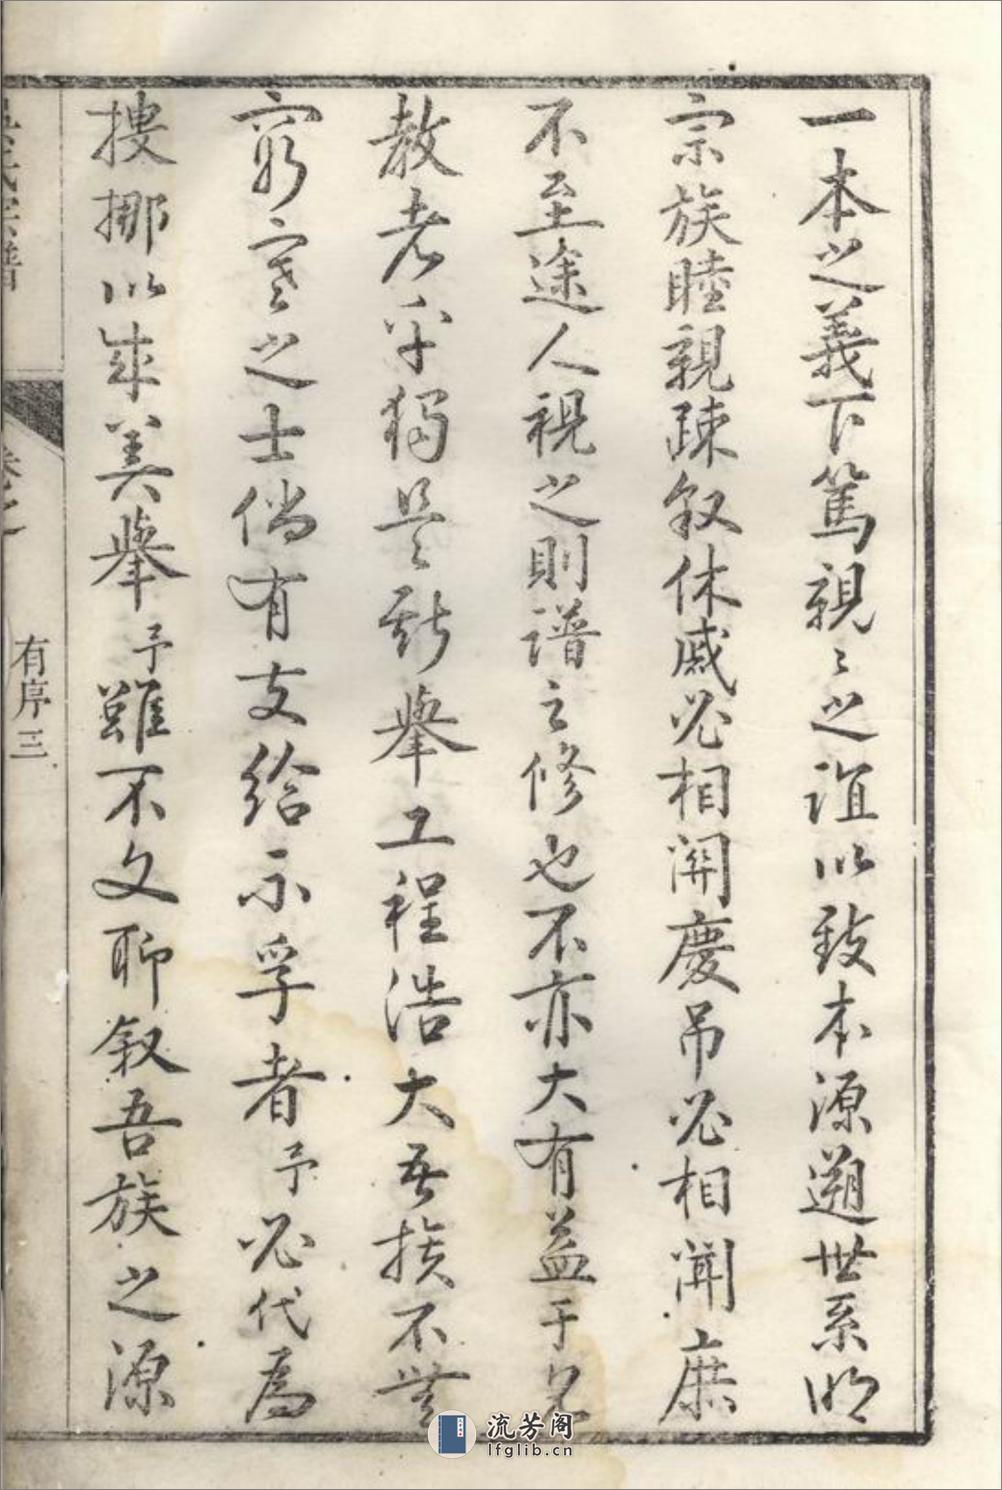 一本之義下篤親〻之誼以致本源遡世系明
宗族睦親疎叙休戚必相関慶吊必相聞庶
不至途人視之則譜之修也不亦大有益于名
教者乎獨是斯舉工程浩大吾族不無
窮窘之士倘有支給不孚者予必代為
摟挪以成美舉予雖不文聊叙吾族之源
氏宗譜
卷之
有序三
流芳阁
lfglib.cn